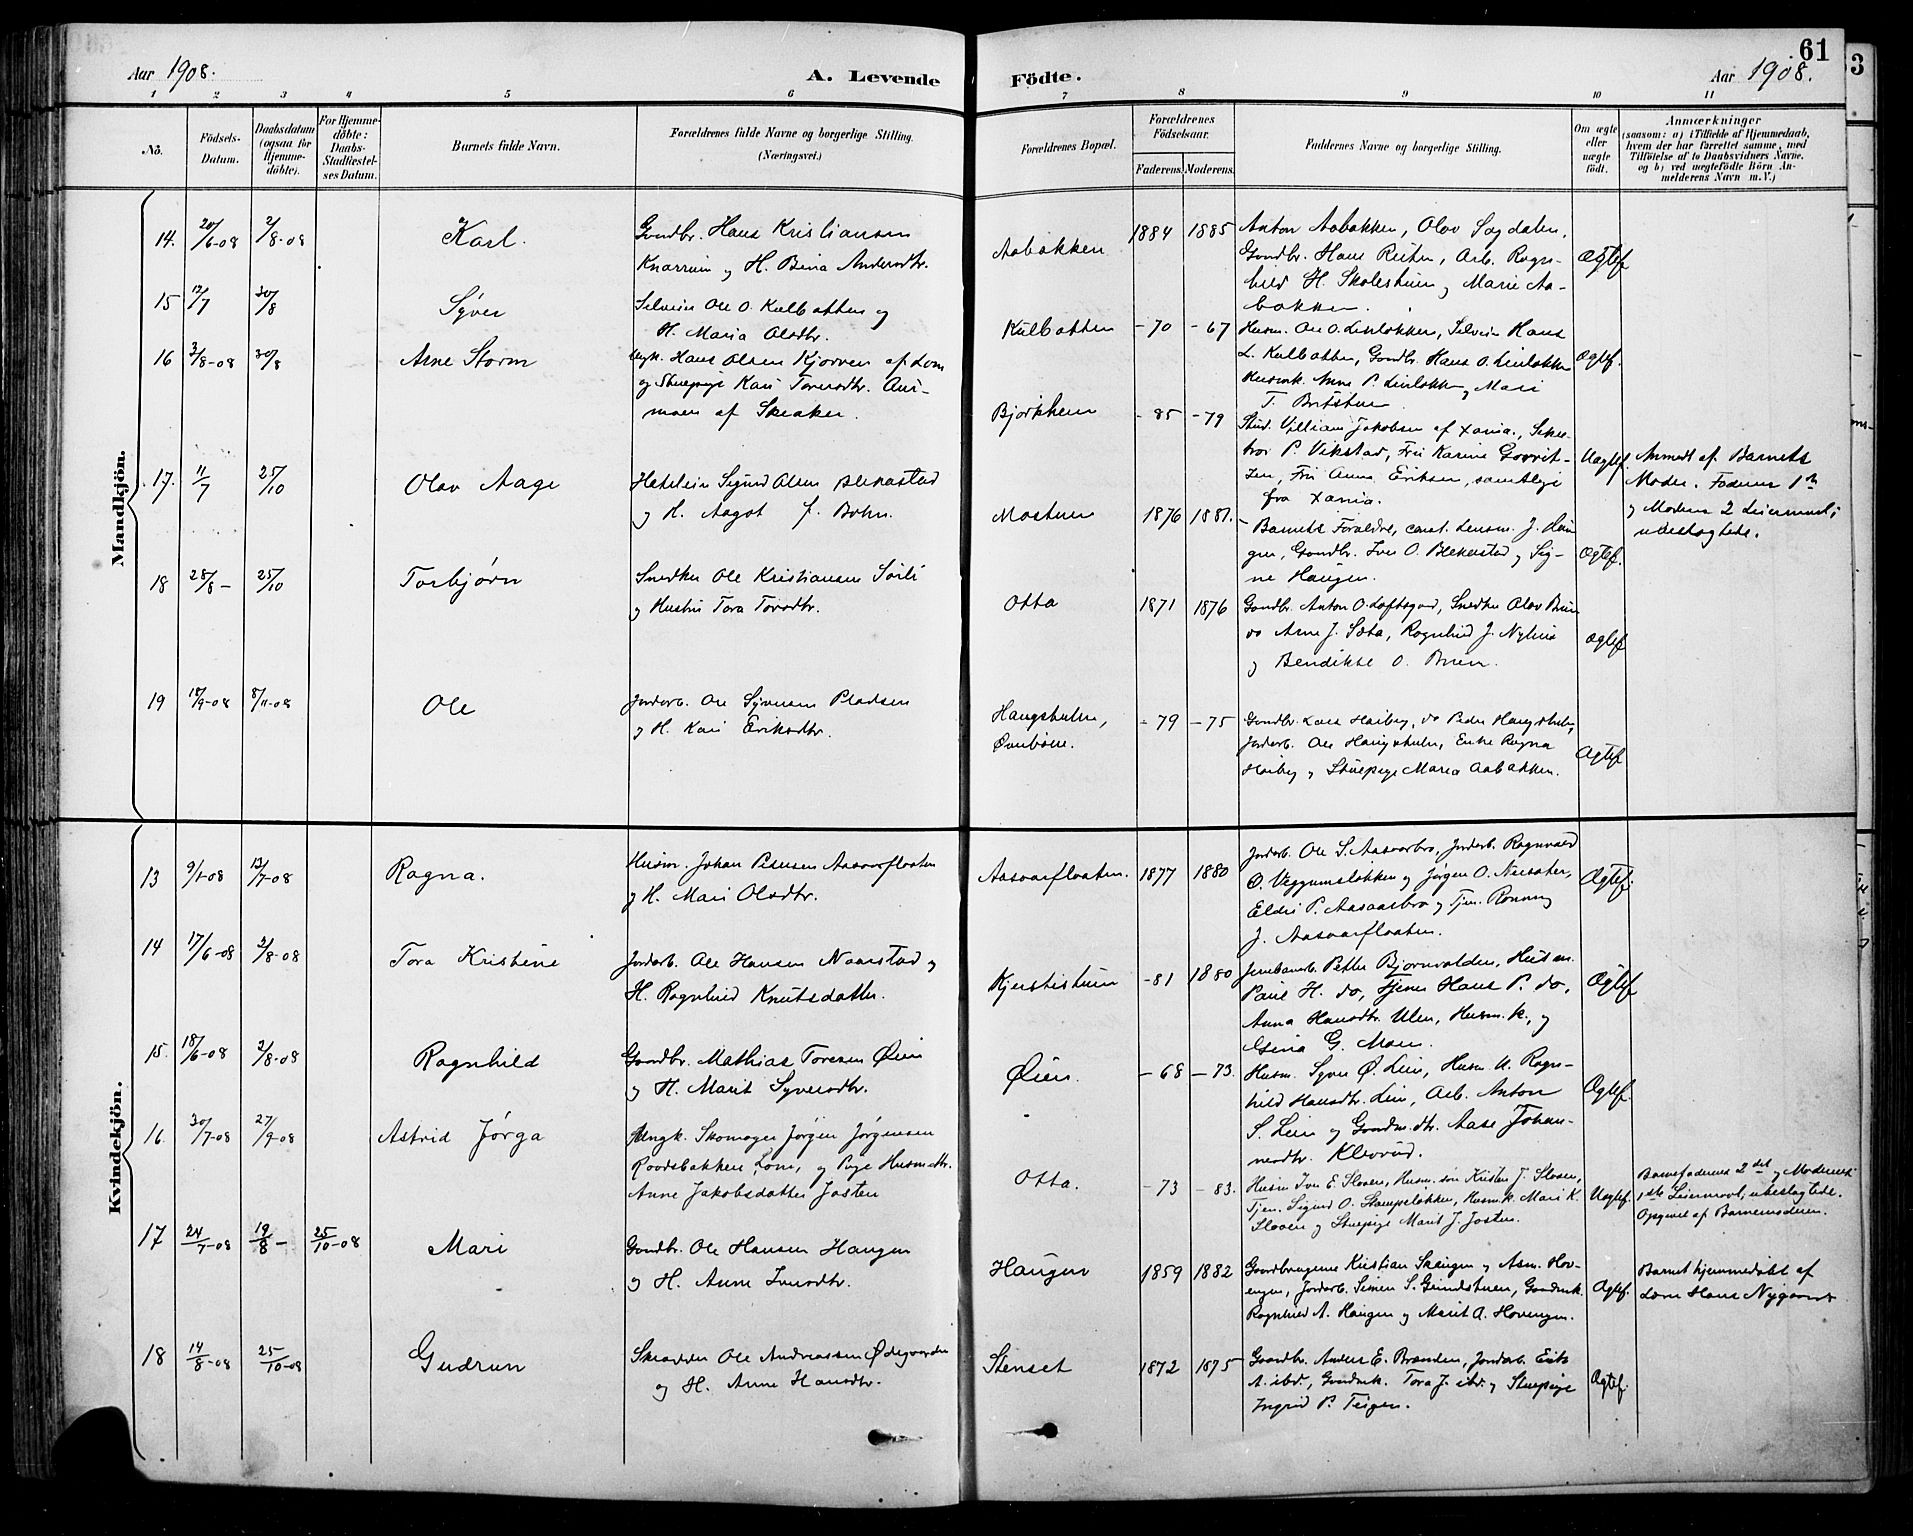 61
3
Aar 1908.
A. Levende
Födte.
Aar 1908.
1 2 3 4 5 6 7 8 9 10 11
No.
Födsels-
Datum.
Daabsdatum
(ogsaa for
Hjemme-
döbte).
For Hjemme-
döbte:
Daabs-
Stadfæstel-
ses Datum.
Barnets fulde Navn.
Forældrenes fulde Navne og borgerlige Stilling.
(Næringsvei.)
Forældrenes Bopæl.
Forældrenes
Födselsaar.
Faderens. Moderens.
Faddernes Navne og borgerlige Stilling.
Om ægte
eller
uægte
födt.
Anmærkninger
(saasom: a) i Tilfælde af Hjemmedaab,
hvem der har forrettet samme, med
Tilföielse af to Daabsvidners Navne,
og b) ved uægtefödte Börn An-
melderens Navn m. V.)
Mandkjön.
14. 20/6-08 2/8-08 Karl.
Gardbr. Hans Kristiansen
og H. Bina Andersdtr.
Aabakken 1884 1885
Anton Aabakken, Olov Sagdalen,
Gardbr. Hans Reiten, Arb. Ragn-
hild H. og Marie Aa-
bakken.
Ægtef.
15 12/7 30/8 Syver
Ole O. Kulbotten og
H. Maria Olsdtr.
Kulbotten -70 -67
Husm. Ole O. Linløkken, Hans
L. Kulbotten, Gardbr. Hans O. Linløkken
Anne P. Linløkken og Mari
T.
Ægtef.
16 3/8-08 30/8 Arne Storm
Ugk. Hans Olsen Kjørren af Lom
og Stuepige Kari Toresdtr. Aur-
moen af Skiaker.
Bjørkheim -85 -79
Stud. William Jakobsen af Xania.,
P. Vikstad, Frk Karine
Frk Anna Eriksen, samtlige
fra Xania.
Uægtef.
Anmeldt af Barnets
Moder. Faderens 1ste
og Moderens 2 Leiermaal;
ubeslægtede.
17. 11/7 25/10 Olav Aage
Sigurd Olsen Blekastad
og H. Aagot f. Bohn.
Mostuen 1876 1881.
Barnets Forældre, cand. Lensm. J. Hau-
gen, Gardbr. Iver O. Blekastad og Sig-
ne Haugen.
Ægtef.
18 28/8 - 25/10 Torbjørn
Snedker Ole Kristiansen Sørli
og Hustru Tora Torsdtr.
Otta 1871 1876
Gardbr. Anton O. Loftsgard, Snedker Olav Bruu
do Arne J. Sæta, Ragnhild J.
og Bendikte O. Bruen.
Ægtef.
19 18/9-08 8/11-08 Ole
Jordarb. Ole Syversen Pladsen
og H. Kari Eriksdtr.
Haugsholen,
-79 -75
Gardbr. Lars Harbey, do Peder Haugsholen,
Jordarb. Ole Haugsholen, Enke Ragna
og Stuepige Maria Aabakken.
Ægtef.
Kvindekjön.
13 9/1-08 12/7-08 Ragna.
Husm. Johan Petersen Aasaarfloaten
og H. Mari Olsdtr.
Aasaarfloaten. 1877 1880
Jordarb. Ole S. Aasaarbro, Jordarb. Ragnvald
O. Veggumsløkken og Jørgen O. Nersæter,
Eldri P. Aasaarbro og Tjen. Rønnaug
J. Aasaarfloaten.
Ægtef.
14 17/6-08 2/8-08 Tora Kristine
Jordarb. Ole Hansen Naarstad og
H. Ragnhild Knutsdatter.
Kjerstistuen -81 1880
Jernbanearb. Petter Bjørnvolden, Husm.
Paul H. do, Tjener Hans P. do,
Anna Hansdtr. Ulen, Husm.k., og
Gina G. Moen.
Ægtef
15. 18/6-08 2/8-08 Ragnhild
Gardbr. Mathias Toresen Øien
og H. Marit Syversdtr.
Øien. -68 -73.
Husm. Syver Ø. Lien, Husm. k. Ragn-
hild Hansdtr. Lien, Arb. Anton
S. Lien og Gardm.dtr. Aase Johan-
nesdtr. Klevrud.
Ægtef.
16. 30/7-08 27/9-08 Astrid Jørga
Ungk. Skomager Jørgen Jørgensen
Roodsbakken, Lom, og Pige Husm.dtr.
Anne Jakobsdatter Josten
Otta. -73 -83.
Husm Iver E. Sloaen, Husm. søn Kristen J. Sloaen,
Tjen. Sigurd O. Stampeløkken, Husm.k. Mari K.
Sloaen og Stuepige Marit J. Josten.
Uægtef.
Barnefaderens 2det og Moderens
1ste Leiermaal, ubeslægtede.
Opgivet af Barnemoderen.
17 24/7-08 19/8 - 25/10-08 Mari
Gardbr. Ole Hansen Haugen
og H. Anne Iversdtr.
Haugen 1859 1882
Gardbrugerne Kristian Skaugen og Asm. Hov-
engen, Jordarb. Simen S. Grindstuen, Gardmk.
Ragnhild A. Haugen og Marit A. Hovengen.
Ægtef.
Barnet hjemmedøbt af
Lærer Hans Nygaard
18 14/8-08 25/10-08 Gudrun
Skrædder Ole Andreassen Ødegaarden
og H. Anne Hansdtr.
Stenset 1872 1875
Gardbr. Anders E. Brænden, Jordarb. Erik
A. ibd., Gardmk. Tora J. ibd. og Stuepige
Ingrid P. Teigen.
Ægtef.